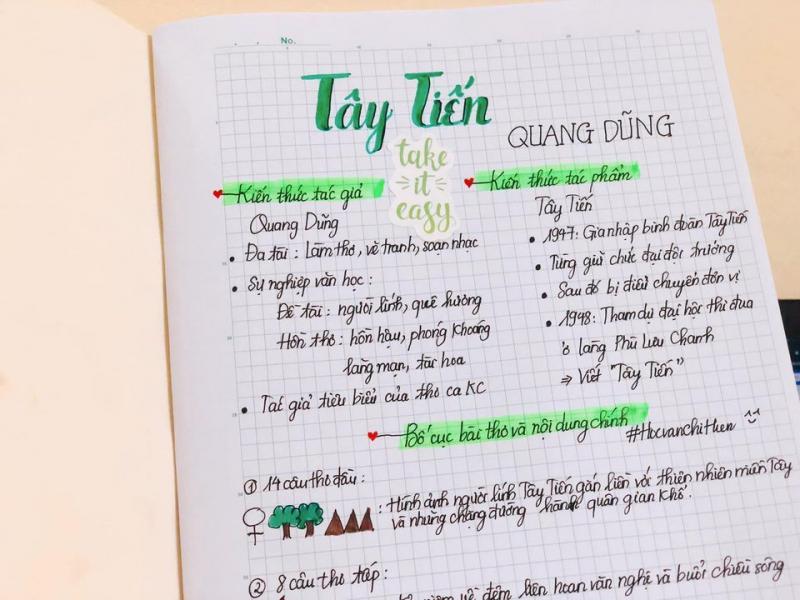 No.
Tây Tiến
QUANG DŨNG
take
it
easy
Kiến thức tác giả
Quang Dũng
• Đa tài: Làm thơ, vẽ tranh, soạn nhạc
• Sự nghiệp văn học:
Đề tài: người lính, quê hương
Hồn thơ: hồn hậu, phóng khoáng
lãng mạn, tài hoa
• Tác giả tiêu biểu của thơ ca KC
Kiến thức tác phẩm
Tây Tiến
• 1947: Gia nhập binh đoàn Tây Tiến
• Từng giữ chức đại đội trưởng
• Sau đó bị điều chuyển đơn vị
• 1948: Tham dự đại hội thi đua
ở làng Phù Lưu Chanh
⇒ Viết "Tây Tiến"
Bố cục bài thơ và nội dung chính
#Hocvanchithien ^^
① 14 câu thơ đầu:
: Hình ảnh người lính Tây Tiến gắn liền với thiên nhiên miền Tây
và những chặng đường hành quân gian khổ.
② 8 câu thơ tiếp:
niệm về đêm liên hoan văn nghệ và buổi chiều sông